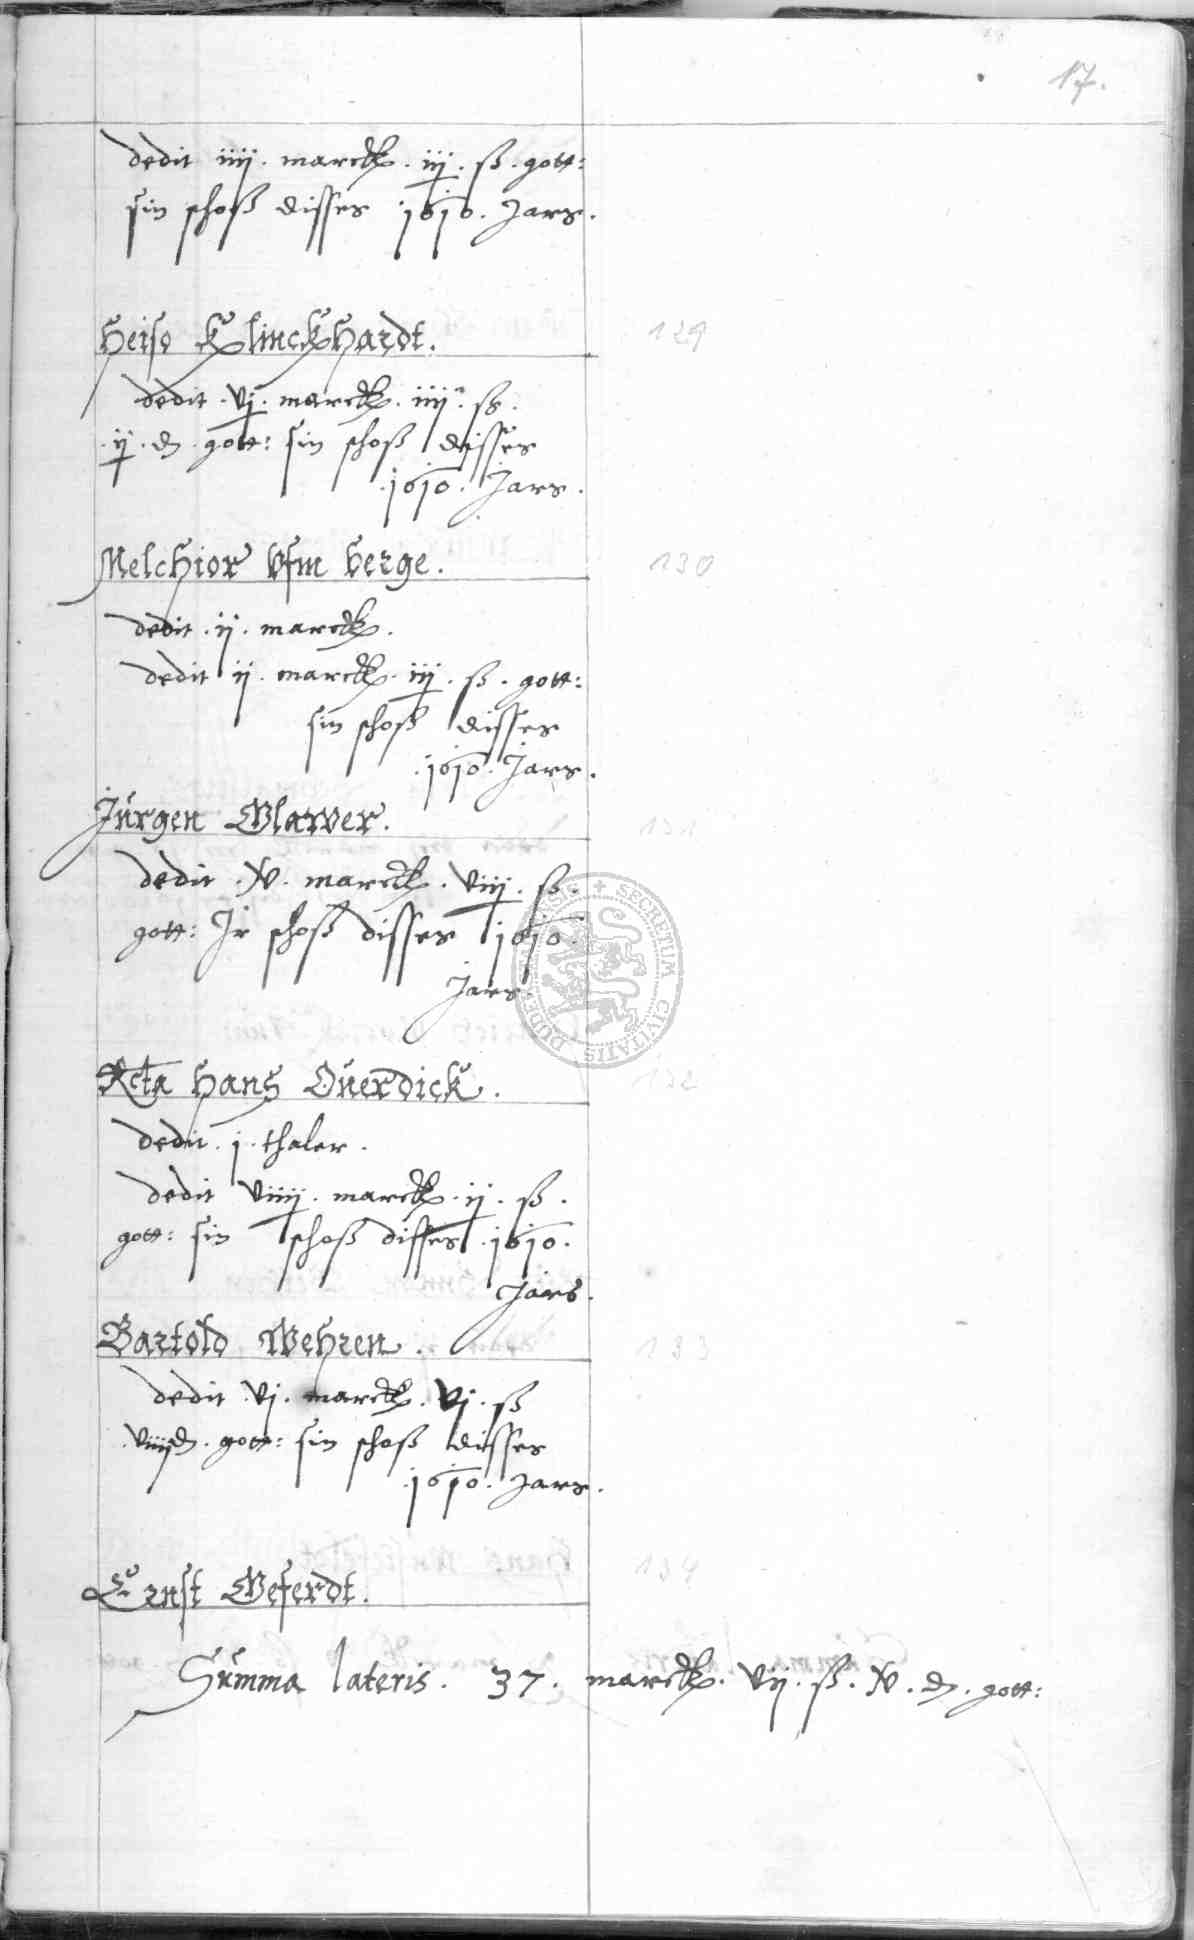 17.
dedit iiij. marck. iij. ß. gott:
sin schoß disses 1610. Jars.
Heiso Klinckhardt.
129
dedit. vj. marck. iiij. ß.
.ij. d. gott: sin schoß disses
.1610. Jars.
Melchior Vfm berge.
130
dedit. ij. marck.
dedit ij. marck. iij. ß. gott:
sin schoß disses
.1610. Jars.
Jürgen Glawer.
131
dedit. x. marck. viij. ß.
gott: Jr schoß disses 1610.
Jars.
Rcta Hans Ouerdick.
132
dedit. j. thaler.
dedit viiij. marck. ij. ß.
gott: sin schoß disses .1610.
Jars.
Bartold Wehren.
133
dedit vj. marck. vj. ß
viiij d. gott: sin schoß disses
.1610. Jars.
Ernst Geferdt.
134
Summa lateris. 37. marck. vij. ß. x. d. gott:
SECRETUM CIVITATIS